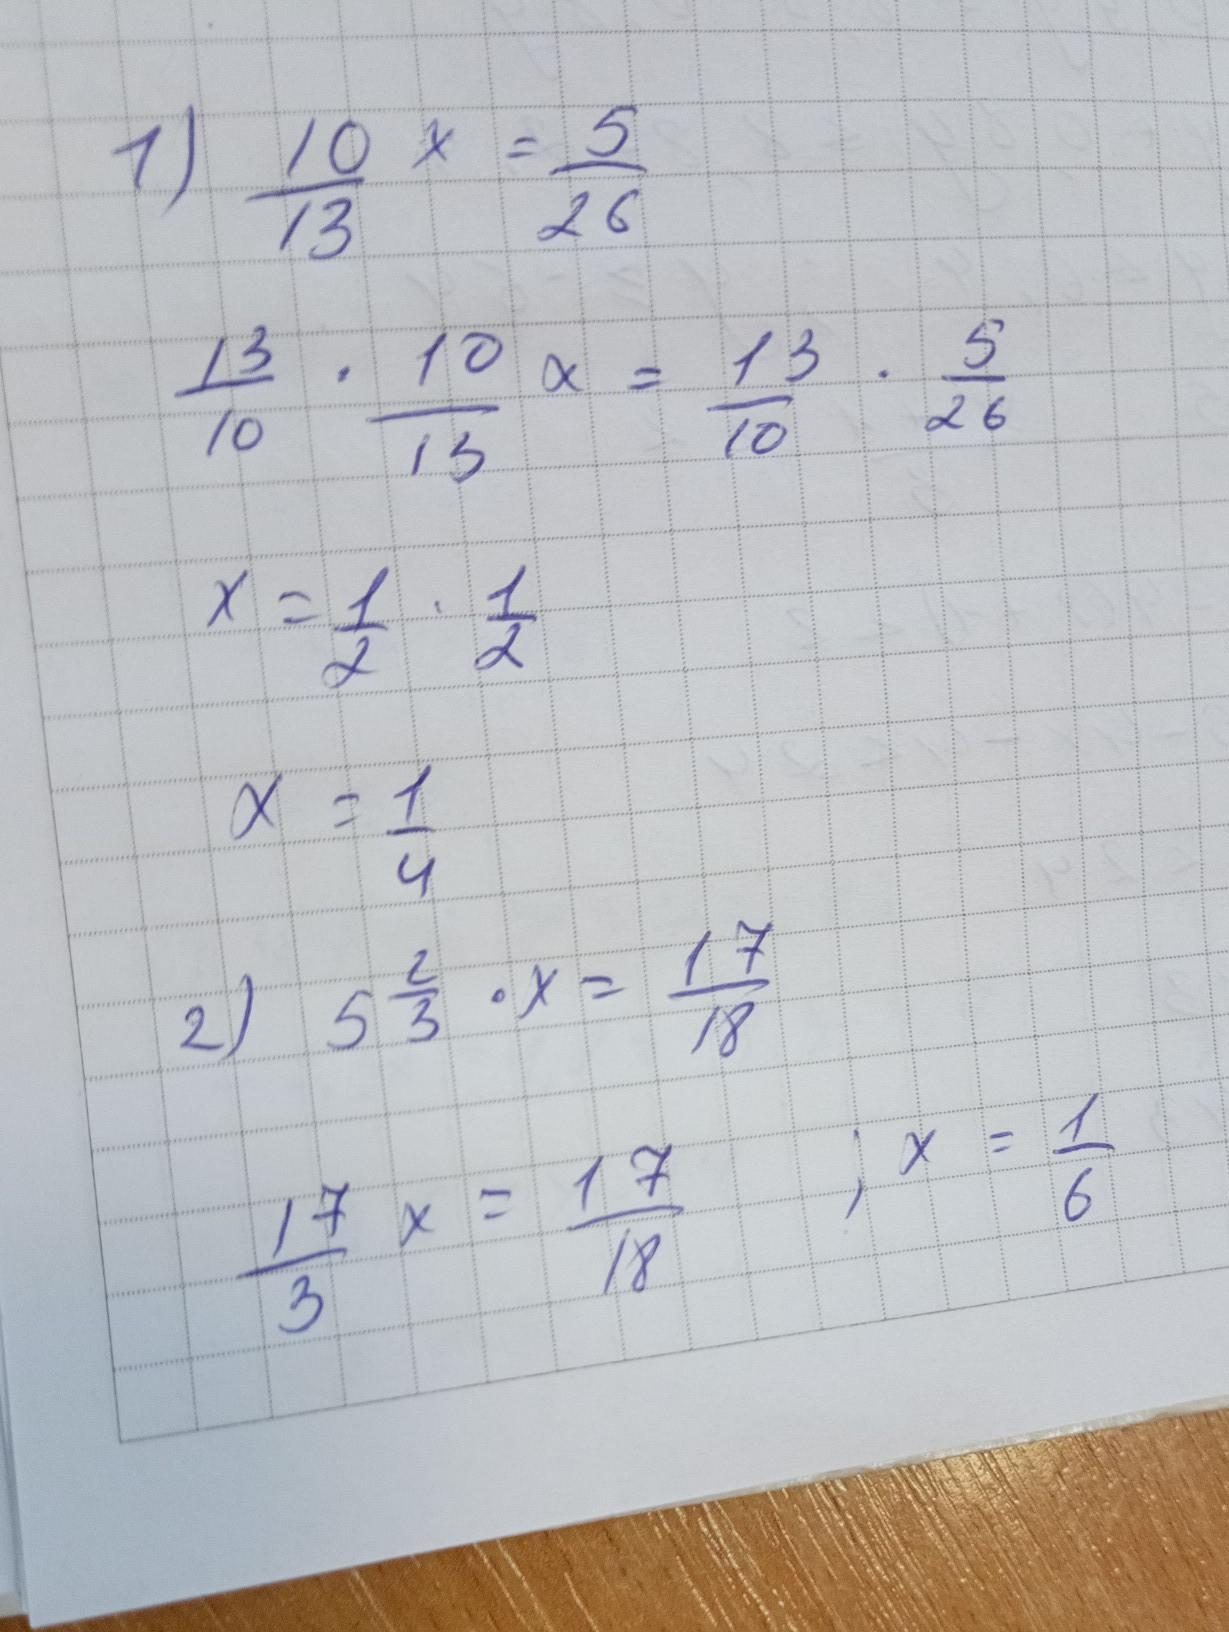 1) 10/13 x = 5/26
13/10 · 10/13 x = 13/10 · 5/26
x = 1/2 · 1/2
x = 1/4
2) 5 2/3 · x = 17/18
17/3 x = 17/18 ; x = 1/6